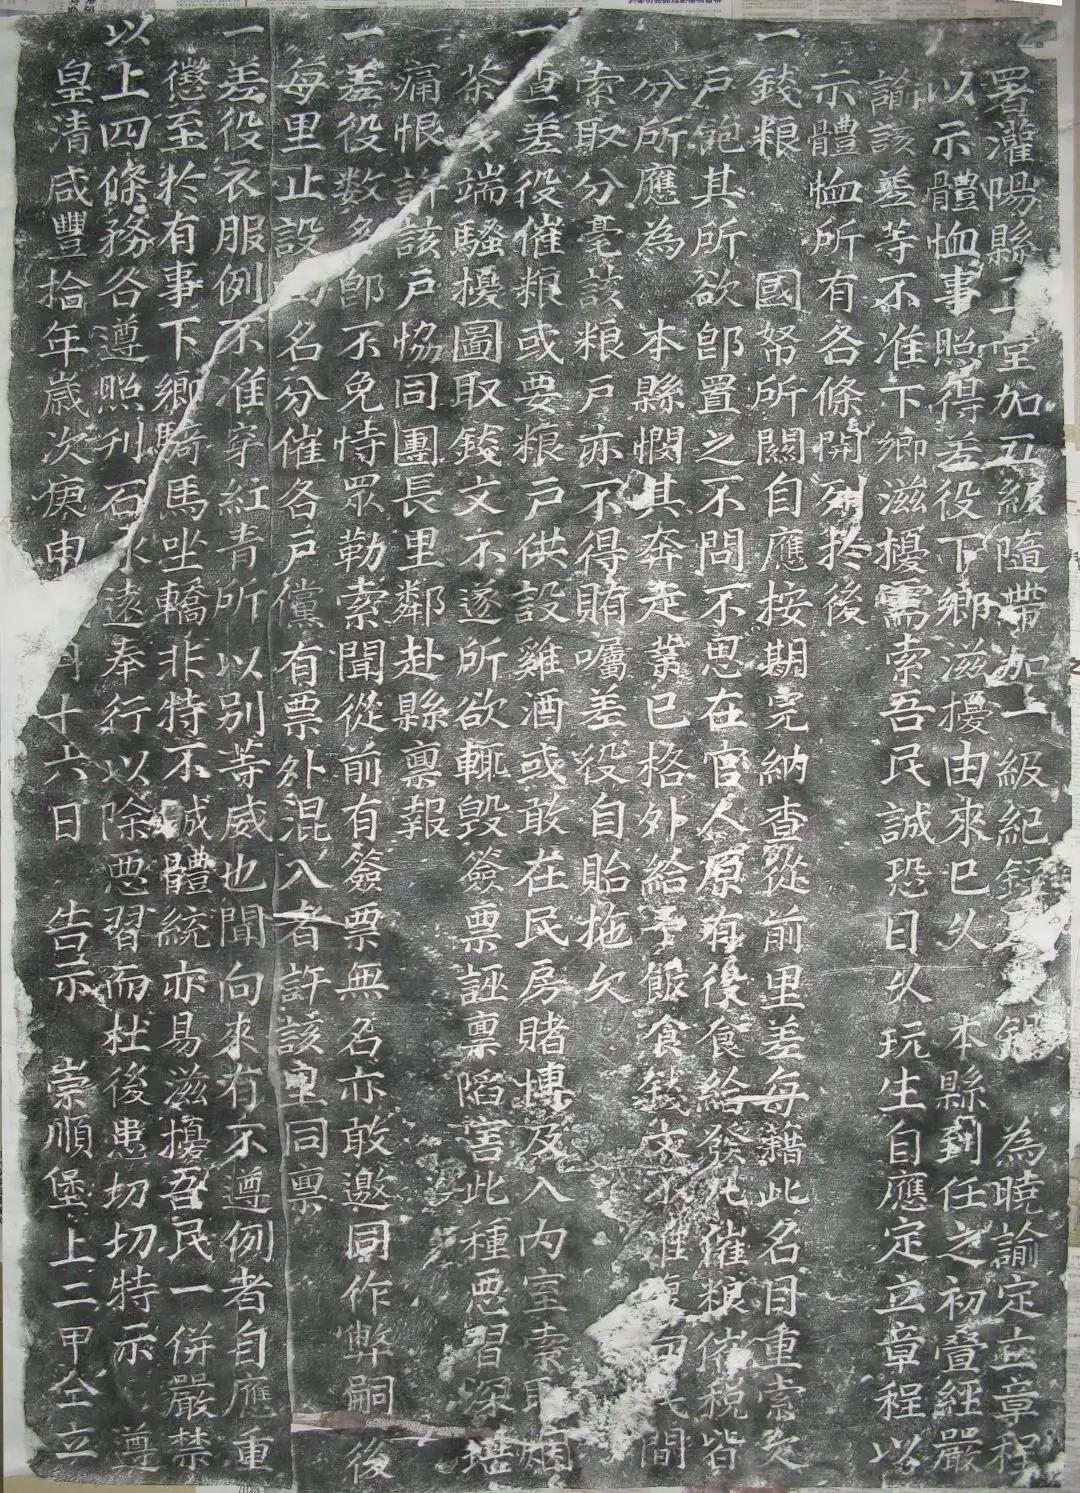 署灌陽縣正堂加五級隨帶加一級紀錄 為曉諭定立章程
以示體恤事照得差役下鄉滋擾由來已久 本縣到任之初疊經嚴
諭該差等不准下鄉滋擾需索吾民誠恐日久玩生自應定立章程以
示體恤所有各條開列扵後
一錢粮 國帑所關自應按期完納查從前里差每藉此名目重索欠
戶飽其所欲即置之不問不思在官人原有後食給發凡催粮催稅皆
分所應為 本縣憫其奔走業已格外給予飯食錢文不准復向民間
索取分毫該粮戶亦不得賄囑差役自貽拖欠
一查差役催粮或要粮戶供設雞酒或敢在民房賭博及入內室索取烟
茶多端騷擾圖取錢文不遂所欲輒毀簽票誣禀陷害此種惡習深堪
痛恨許該戶恊同團長里鄰赴縣禀報
一差役数多即不免恃眾勒索聞從前有簽票無名亦敢邀同作弊嗣後
每里止設名分催各戶儻有票外混入者許該里同禀
一差役衣服例不准穿紅青所以別等威也聞向來有不遵例者自應重
懲至扵有事下鄉騎馬坐轎非特不成體統亦易滋擾吾民一併嚴禁
以上四條務各遵照刋石永遠奉行以除惡習而杜後患切切特示 遵
皇清咸豐拾年歲次庚申月十六日 告示 崇順堡上二甲仝立